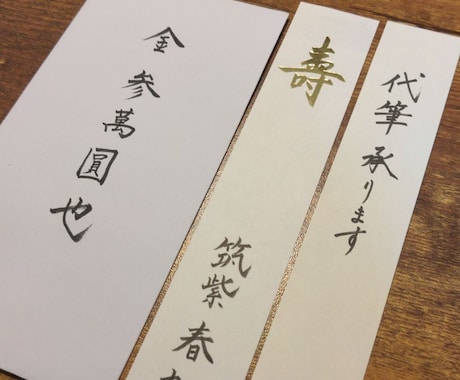 代筆承ります
壽
筑紫春
金参萬圓也